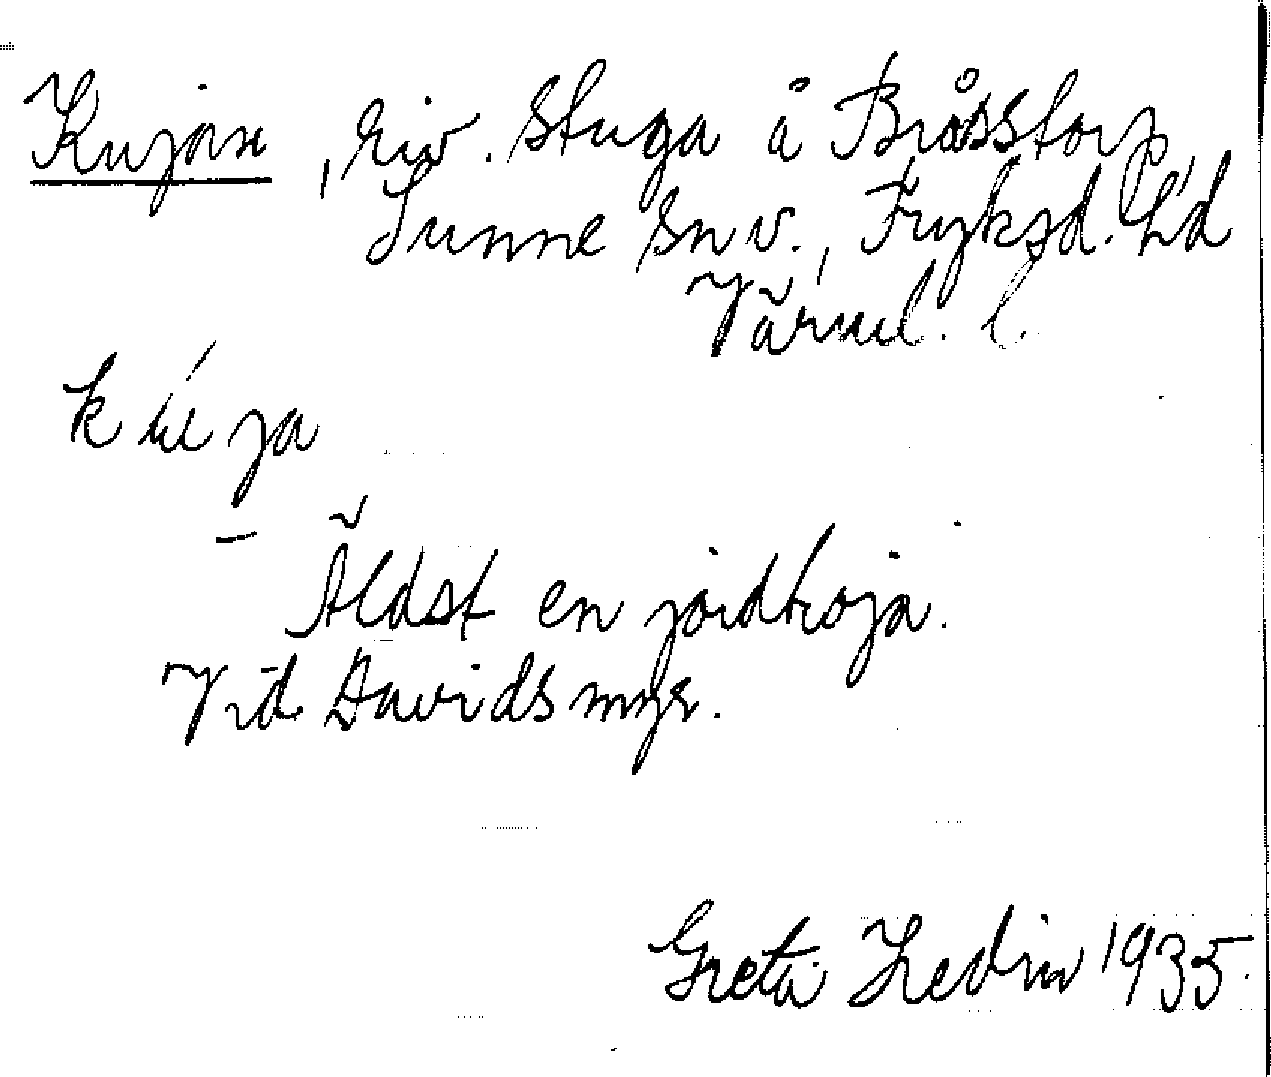 Kujan, riv. stuga å Bråsstorp,
Sunne sn v., Fryksd. hd
Värml. l.
kúja
– Äldst en jordkoja.
Vid Davidsmyr.
Greta Hedin 1935.